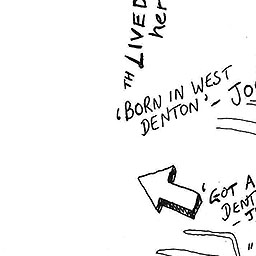 TH LIVED
her
'BORN IN WEST
DENTON' - JO
'GOT A
DENT
- J
"